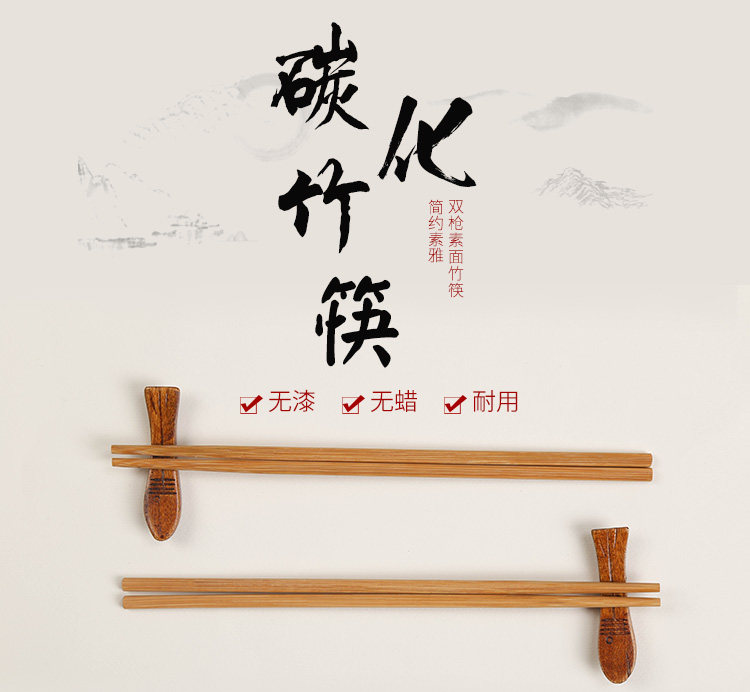 碳化竹筷
双枪素面竹筷
简约素雅
无漆 无蜡 耐用